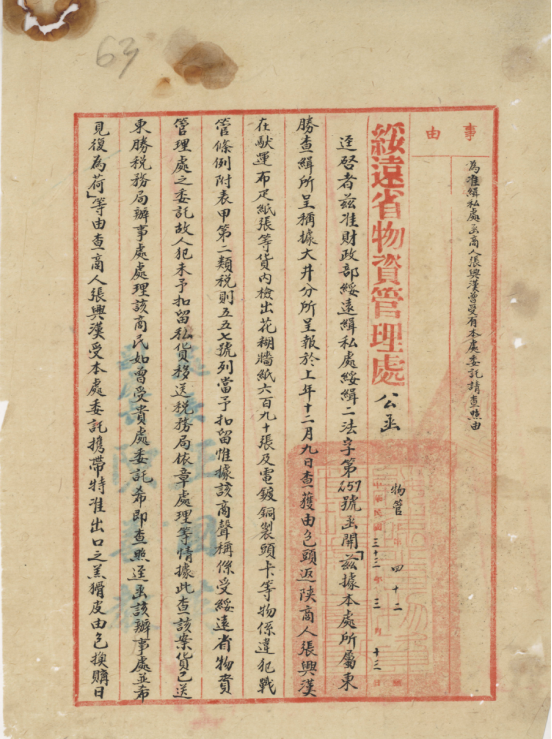 63
事由
為准緝私處函商人張興漢曾受有本處委託請查照由
綏遠省物資管理處公函
物管 四十二
中華民國三十三年三月十三日
逕啓者兹准財政部綏遠緝私處綏緝二法字第657號函開「兹據本處所屬東
勝查緝所呈稱據大井分所呈報於上年十二月九日查獲由包頭返陝商人張興漢
在馱運布疋紙張等貨内檢出花糊牆紙六百九十張及電鍍銅製頭卡等物係違犯戰
管條例附表甲第二類税則五五七號列當予扣留惟據該商聲稱係受綏遠省物資
管理處之委託故人犯未予扣留私貨移送税務局依章處理等情據此查該案貨已送
東勝税務局辦事處處理該商民如曾受貴處委託希即查照逕函該辦事處並希
見復為荷」等由查商人張興漢受本處委託携帶特准出口之羔猾皮由包換購日